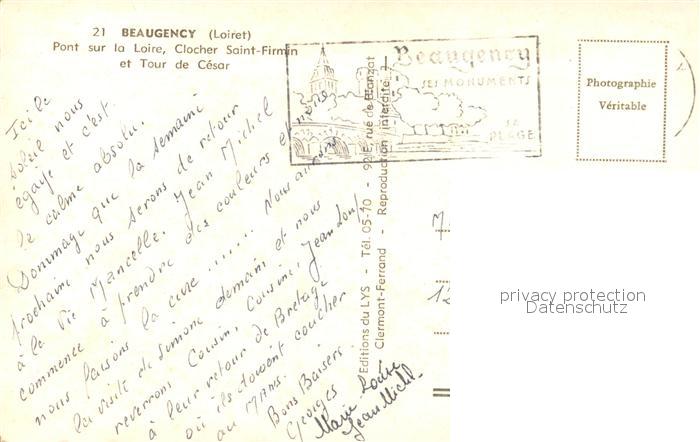 21 BEAUGENCY (Loiret)
Pont sur la Loire, Clocher Saint-Firmin
et Tour de César
Beaugency
SES MONUMENTS
SA
PLAGE
Photographie
Véritable
Ici le
soleil nous
égaye et c'est
le calme absolu.
Dommage que la semaine
prochaine nous serons de retour
à la vie Mancelle. Jean Michel
commence à prendre des couleurs et nous
nous faisons la cure ...... Nous aurons
la visite de Simone demain et nous
reverrons Cousin, Cousine, Jean Loup
à leur retour de Bretagne
où ils doivent coucher
au Mans.
Bons Baisers.
Georges
Marie Louise
Jean Michel
Editions du LYS - Tél. 05-70 - 92 rue de Blanzat
Clermont-Ferrand - Reproduction interdite
privacy protection
Datenschutz